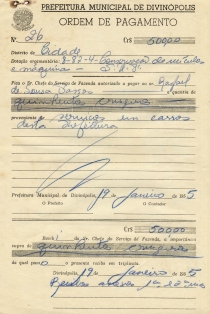 PREFEITURA MUNICIPAL DE DIVINÓPOLIS
ORDEM DE PAGAMENTO
N.º 26 Cr$ 500,00
Distrito de Cidade
Dotação orçamentária: 8-82-4- de
e máquinas -
Fica o Sr. Chefe do Serviço de Fazenda autorizado a pagar ao sr. Rafael
de Sousa a quantia de
quinhentos cruzeiros
proveniente de serviços em carros
desta prefeitura
Prefeitura Municipal de Divinópolis, 19 de Janeiro de 1955
O Prefeito O Contador
Cr$ 500,00
Recebi do Sr. Chefe do Serviço de Fazenda, a importância
supra de quinhentos cruzeiros
da qual passo o presente recibo em triplicata.
Divinópolis, 19 de Janeiro de 1955